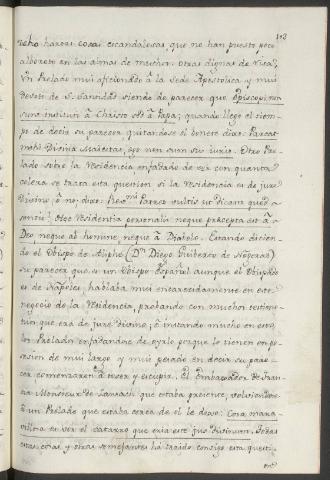 102
dicho hartas cosas escandalosas, que no han puesto poco
alboroto en las almas de muchos. Otras dignas de risa,
Un Prelado mui aficionado à la Sede Apostolica y mui
devoto de S. Santidad siendo de parecer que Episcopi non
sunt instituti à Christo sed à Papa; quando llegó el tiem-
po de decir su parecer quitandose el bonete dixo: Parcat
mihi Divina Maiestas, ego non sum sui iuris. Otro Pre-
lado sobre la Residencia enfadado de ver con quanta
colera se trata esta question si la Residencia es de jure
Divino ò no; dixo: Rev.mi Patres vultis ut dicam quod
sentio? Hec Residentia personalis neque precepta est à
Deo neque ab homine, neque à Diabolo. Estando dicien-
do el Obispo de Aliphe (Dn Diego Guilberto de Nogueras)
su parecer que es un Obispo Español aunque el Obispado
es de Napoles, hablaba mui encarecidamente en este
negocio de la Residencia, probando con muchos testimo-
nios que era de jure Divino; è instando mucho en esto,
los Prelados enfadandose de oyrle porque lo tienen en po-
sesion de mui largo y mui pesado en decir su pare-
cer comenzaron à toser y escupir. El Embaxador de Fran-
cia Monsieur de Lansach que estaba presente, volviendose
à un Prelado que estaba cerca de el le dixo: Cosa mara-
villosa es ver el catarro que cria este jus divinum. Todas
estas cosas, y otras semejantes hà traido consigo esta questi-
on